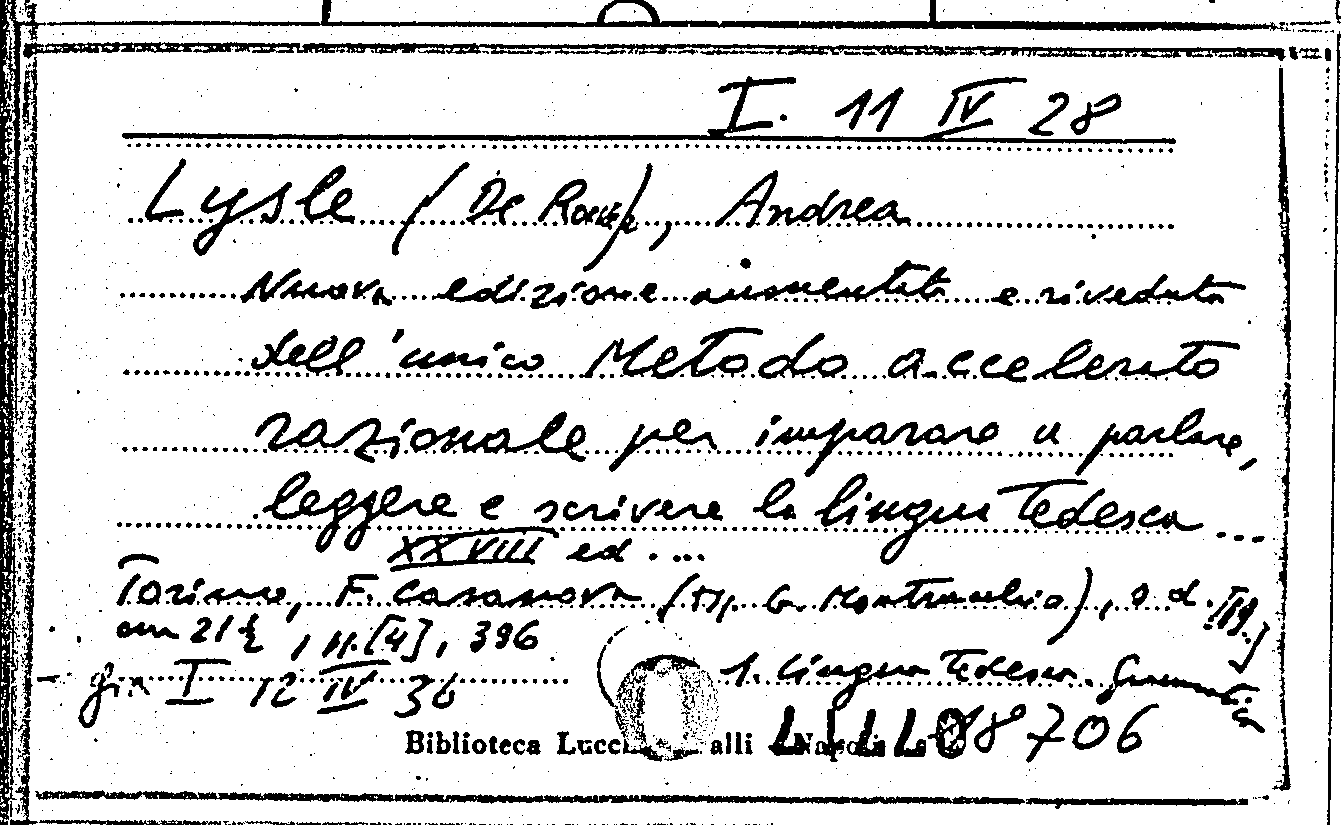 I. 11 IV 28
Lysle (De Roever), Andrea
Nuova edizione aumentata e riveduta
dell'unico Metodo accelerato
razionale per imparare a parlare,
leggere e scrivere la lingua Tedesca ...
XXVIII ed. ...
Torino, F. Casanova (tip. G. Montrucchio), s. d.
cm 21½, pp. [4], 396
1. Lingua Tedesca. Grammatica
già I 12 IV 36
Biblioteca Lucchesi Palli Napoli
LLLL08706